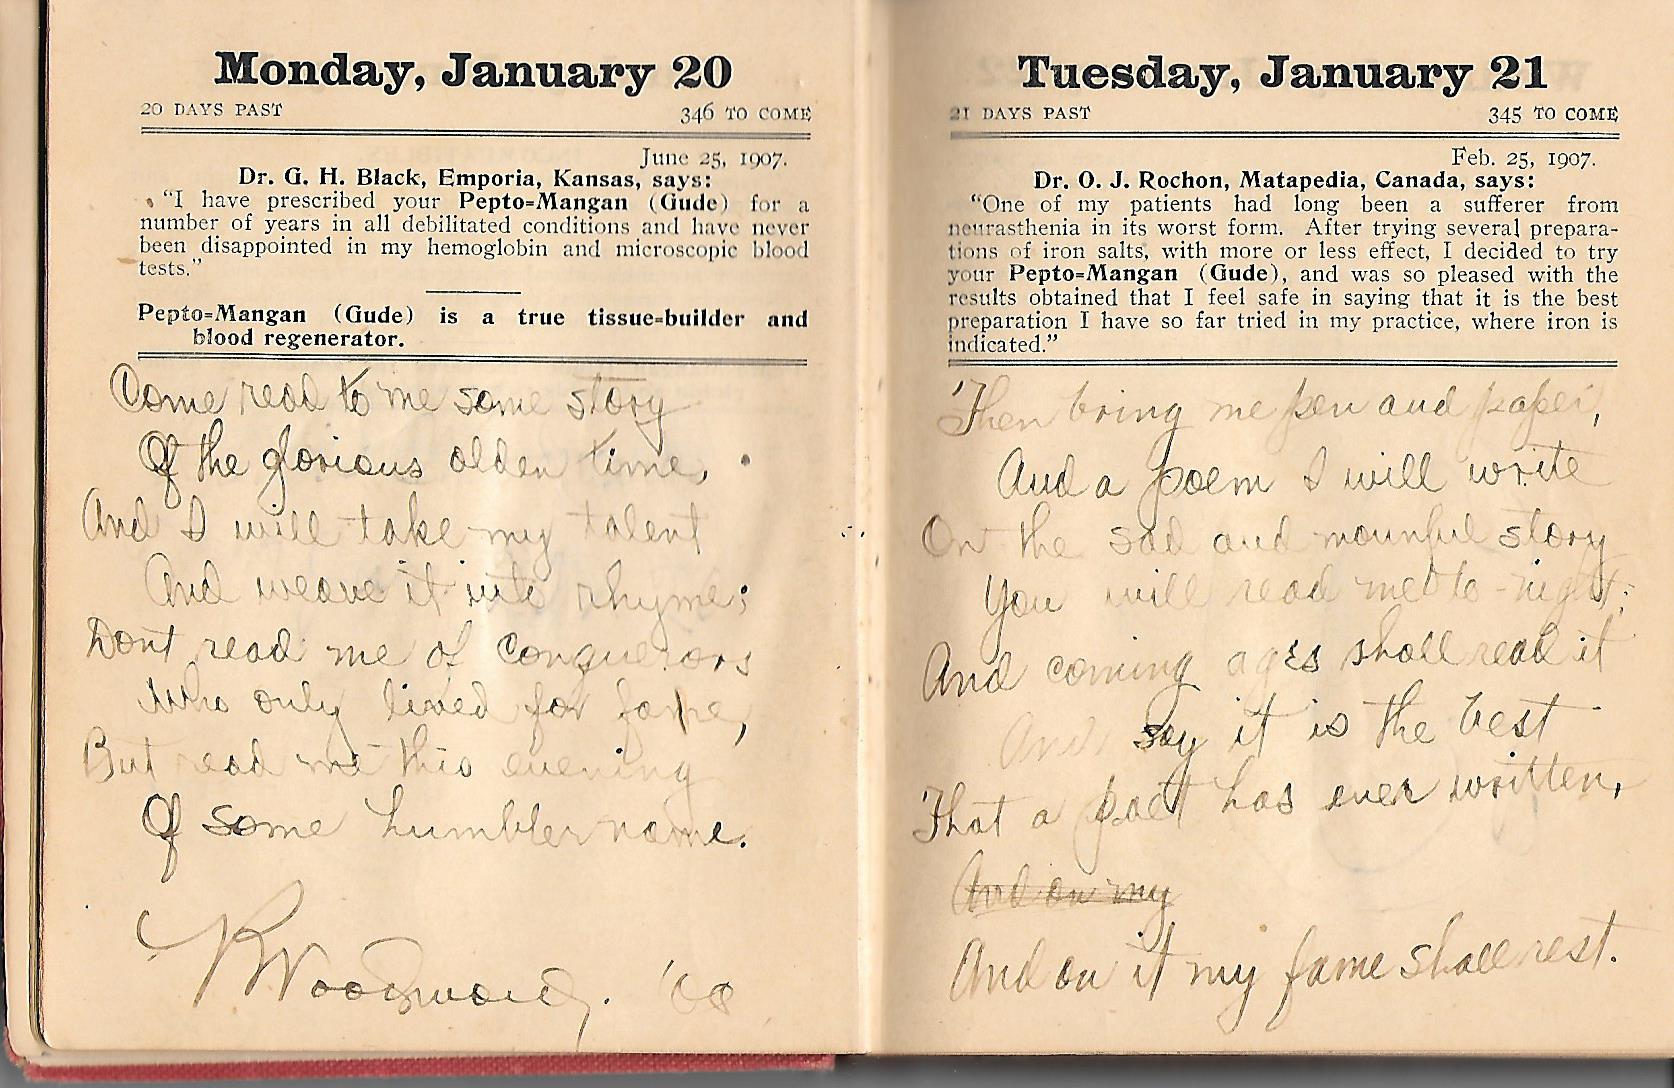 Monday, January 20
20 DAYS PAST 346 TO COME
June 25, 1907.
Dr. G. H. Black, Emporia, Kansas, says:
"I have prescribed your Pepto=Mangan (Gude) for a
number of years in all debilitated conditions and have never
been disappointed in my hemoglobin and microscopic blood
tests."
Pepto=Mangan (Gude) is a true tissue=builder and
blood regenerator.
Come read to me some story
Of the glorious olden time,
And I will take my talent
And weave it into rhyme;
Dont read me of conquerors
Who only lived for fame,
But read me this evening
Of some humbler name.
Woodward. '08
Tuesday, January 21
21 DAYS PAST 345 TO COME
Feb. 25, 1907.
Dr. O. J. Rochon, Matapedia, Canada, says:
"One of my patients had long been a sufferer from
neurasthenia in its worst form. After trying several prepara-
tions of iron salts, with more or less effect, I decided to try
your Pepto=Mangan (Gude), and was so pleased with the
results obtained that I feel safe in saying that it is the best
preparation I have so far tried in my practice, where iron is
indicated."
Then bring me pen and paper,
And a poem I will write
On the sad and mournful story
You will read me to-night;
And coming ages shall read it
And say it is the best
That a poet has ever written,
And on my
And on it my fame shall rest.